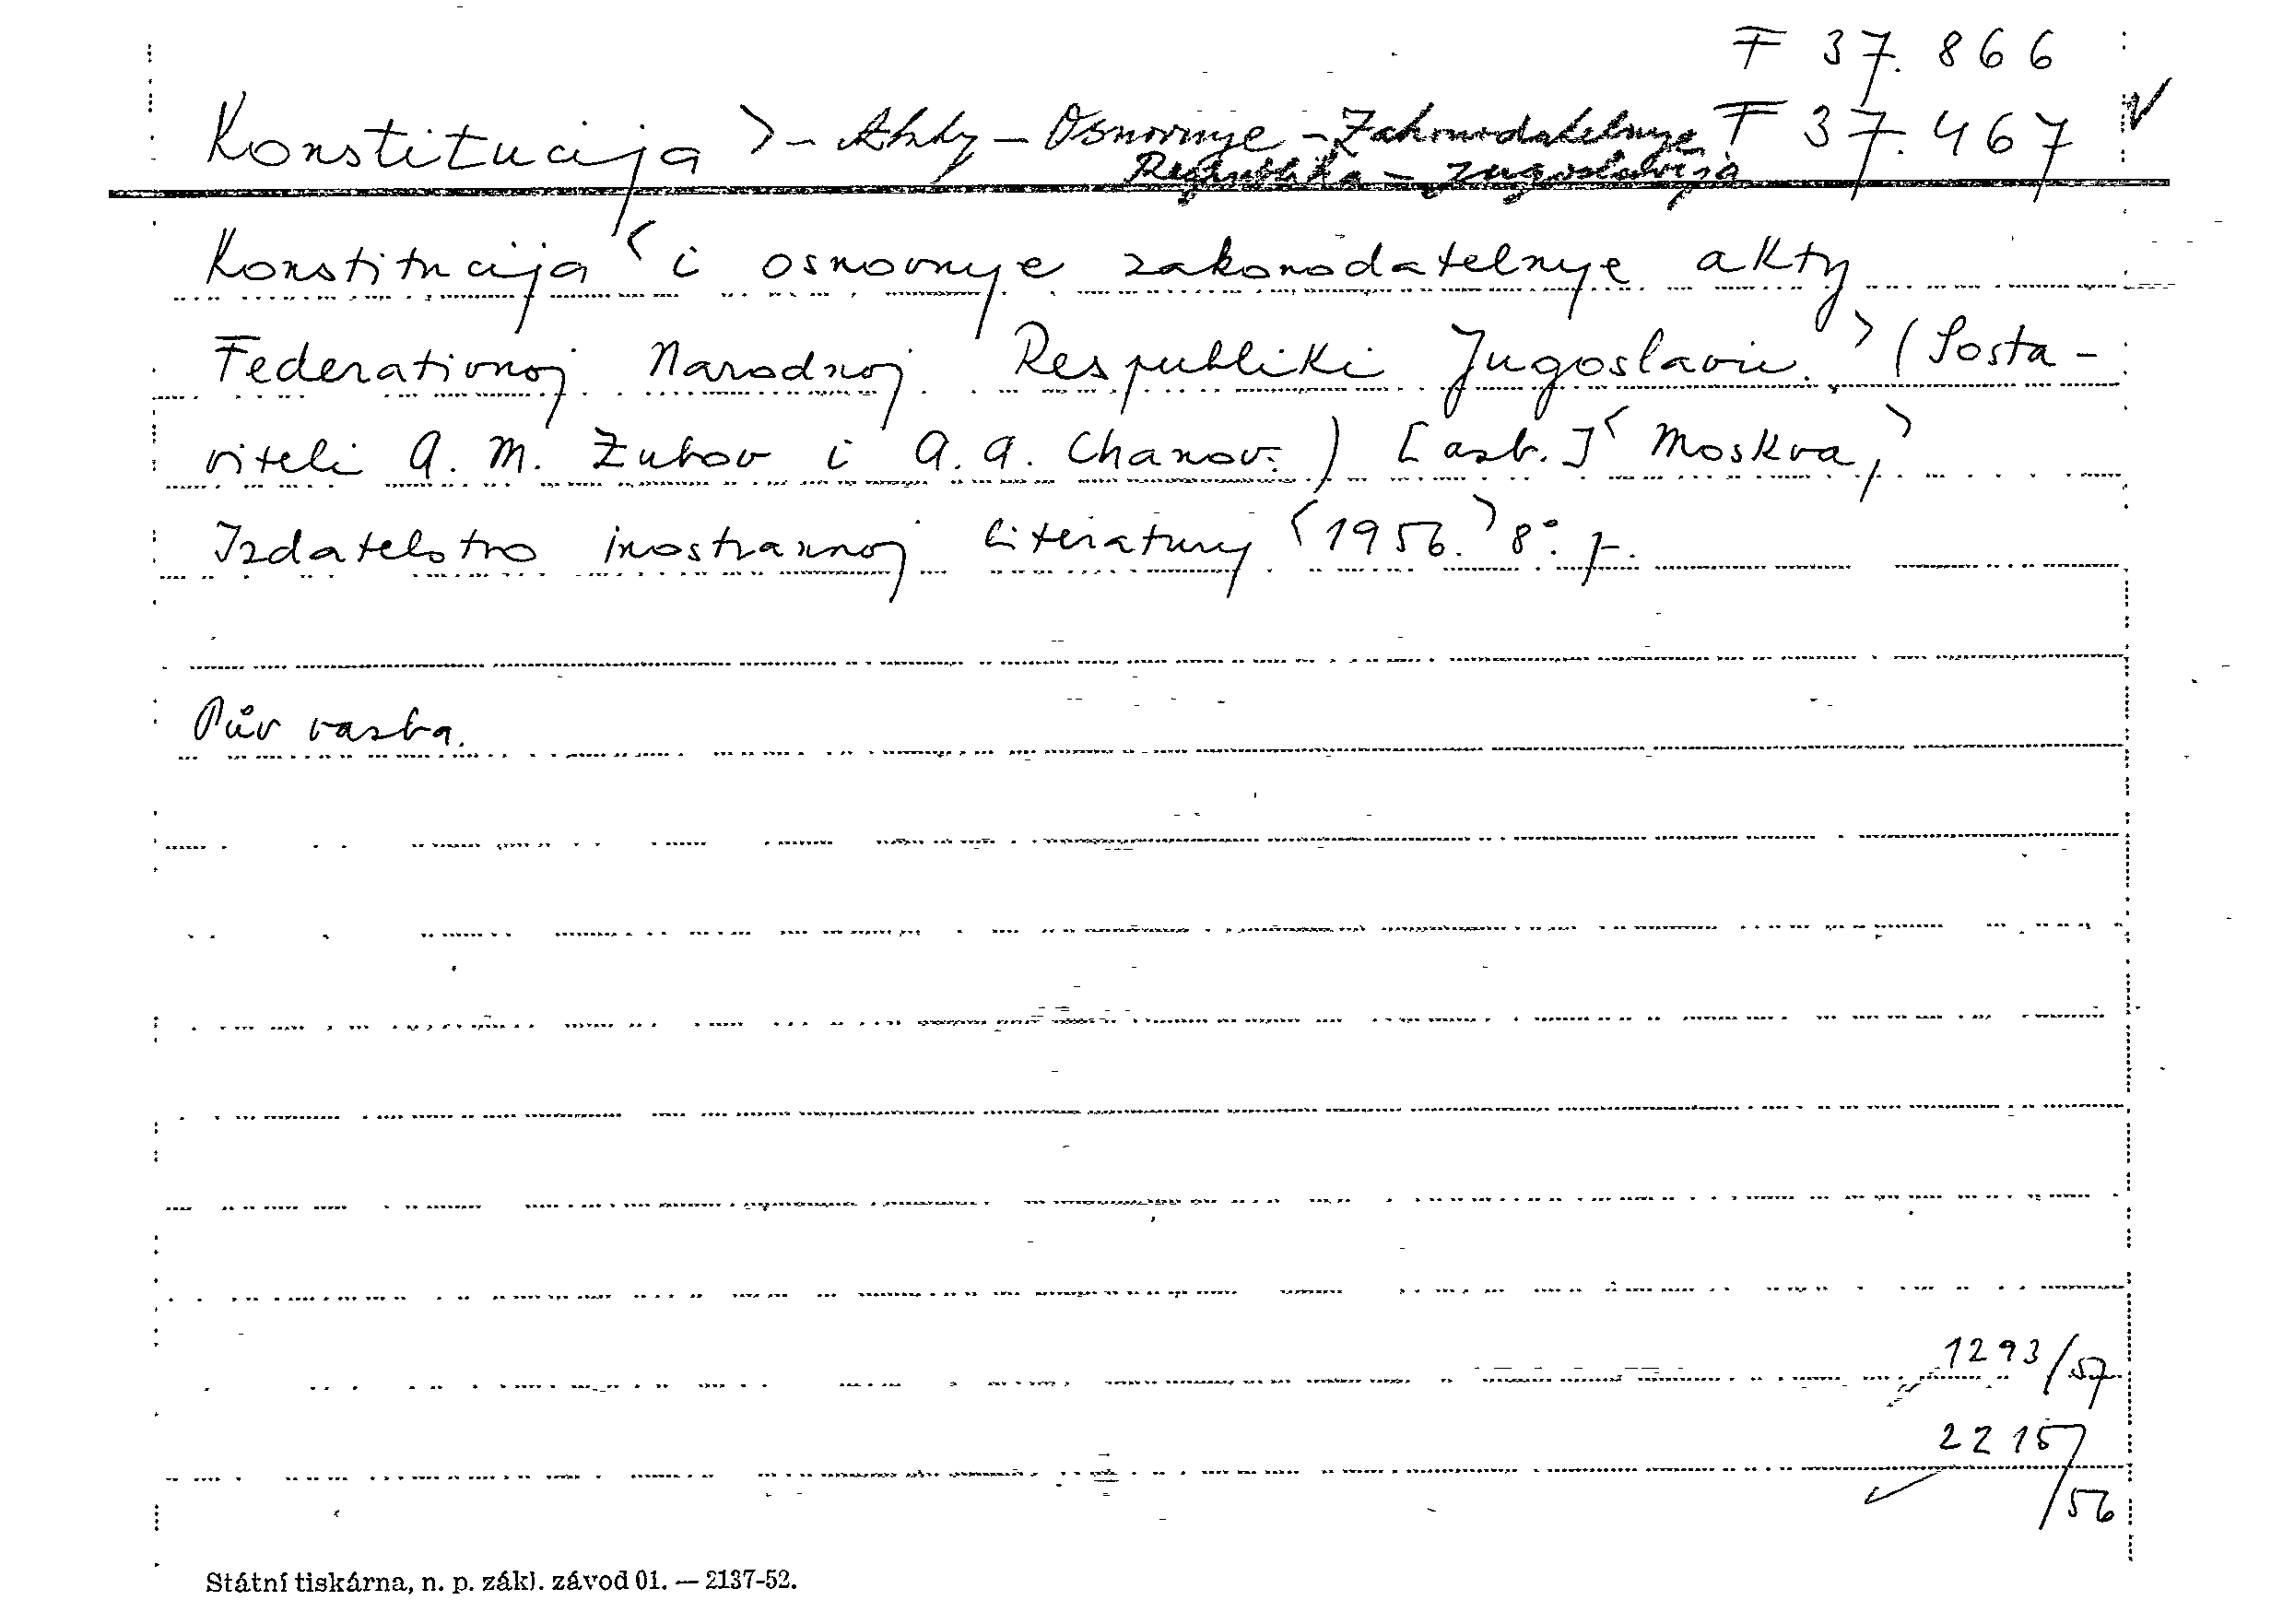 F 37.866
Konstitucija > - Akty - Osnovnyje - Zakonodatelnyje F 37.467 V
Republika - Jugoslavija
Konstitucija < i osnovnye zakonodatelnye akty
Federativnoj Narodnoj Respubliki Jugoslavii. > (Sosta-
viteli A. M. Zubov i A. A. Chanov.) [azb.] < Moskva, >
Izdatelstvo inostrannoj literatury < 1956. > 8°. f.
Pův vazba.
1293/57
2215/56
Státní tiskárna, n. p. zákl. závod 01. — 2137-52.